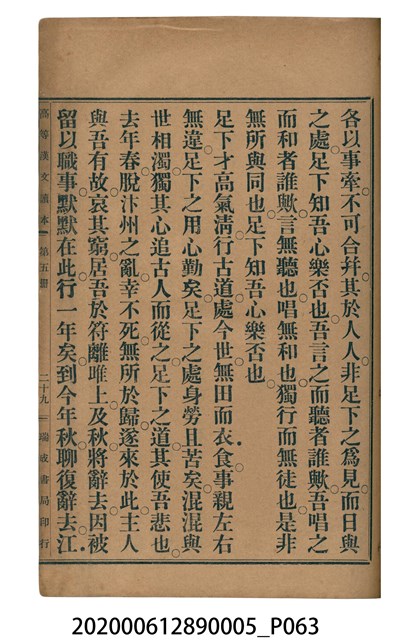 各以事牽不可合幷其於人人非足下之爲見而日與
之處足下知吾心樂否也吾言之而聽者誰歟吾唱之
而和者誰歟言無聽也唱無和也獨行而無徒也是非
無所與同也足下知吾心樂否也
足下才高氣淸行古道處今世無田而衣食事親左右
無違足下之用心勤矣足下之處身勞且苦矣混混與
世相濁獨其心追古人而從之足下之道其使吾悲也
去年春脫汴州之亂幸不死無所於歸遂來於此主人
與吾有故哀其窮居吾於符離睢上及秋將辭去因被
留以職事默默在此行一年矣到今年秋聊復辭去江
高等漢文讀本 第五冊 二十九 瑞成書局印行
202000612890005_P063